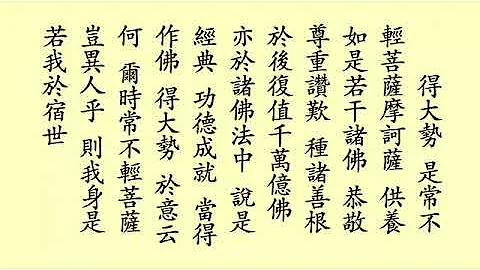 得大勢 是常不
輕菩薩摩訶薩 供養
如是若干諸佛 恭敬
尊重讚歎 種諸善根
於後復值千萬億佛
亦於諸佛法中 說是
經典 功德成就 當得
作佛 得大勢 於意云
何 爾時常不輕菩薩
豈異人乎 則我身是
若我於宿世